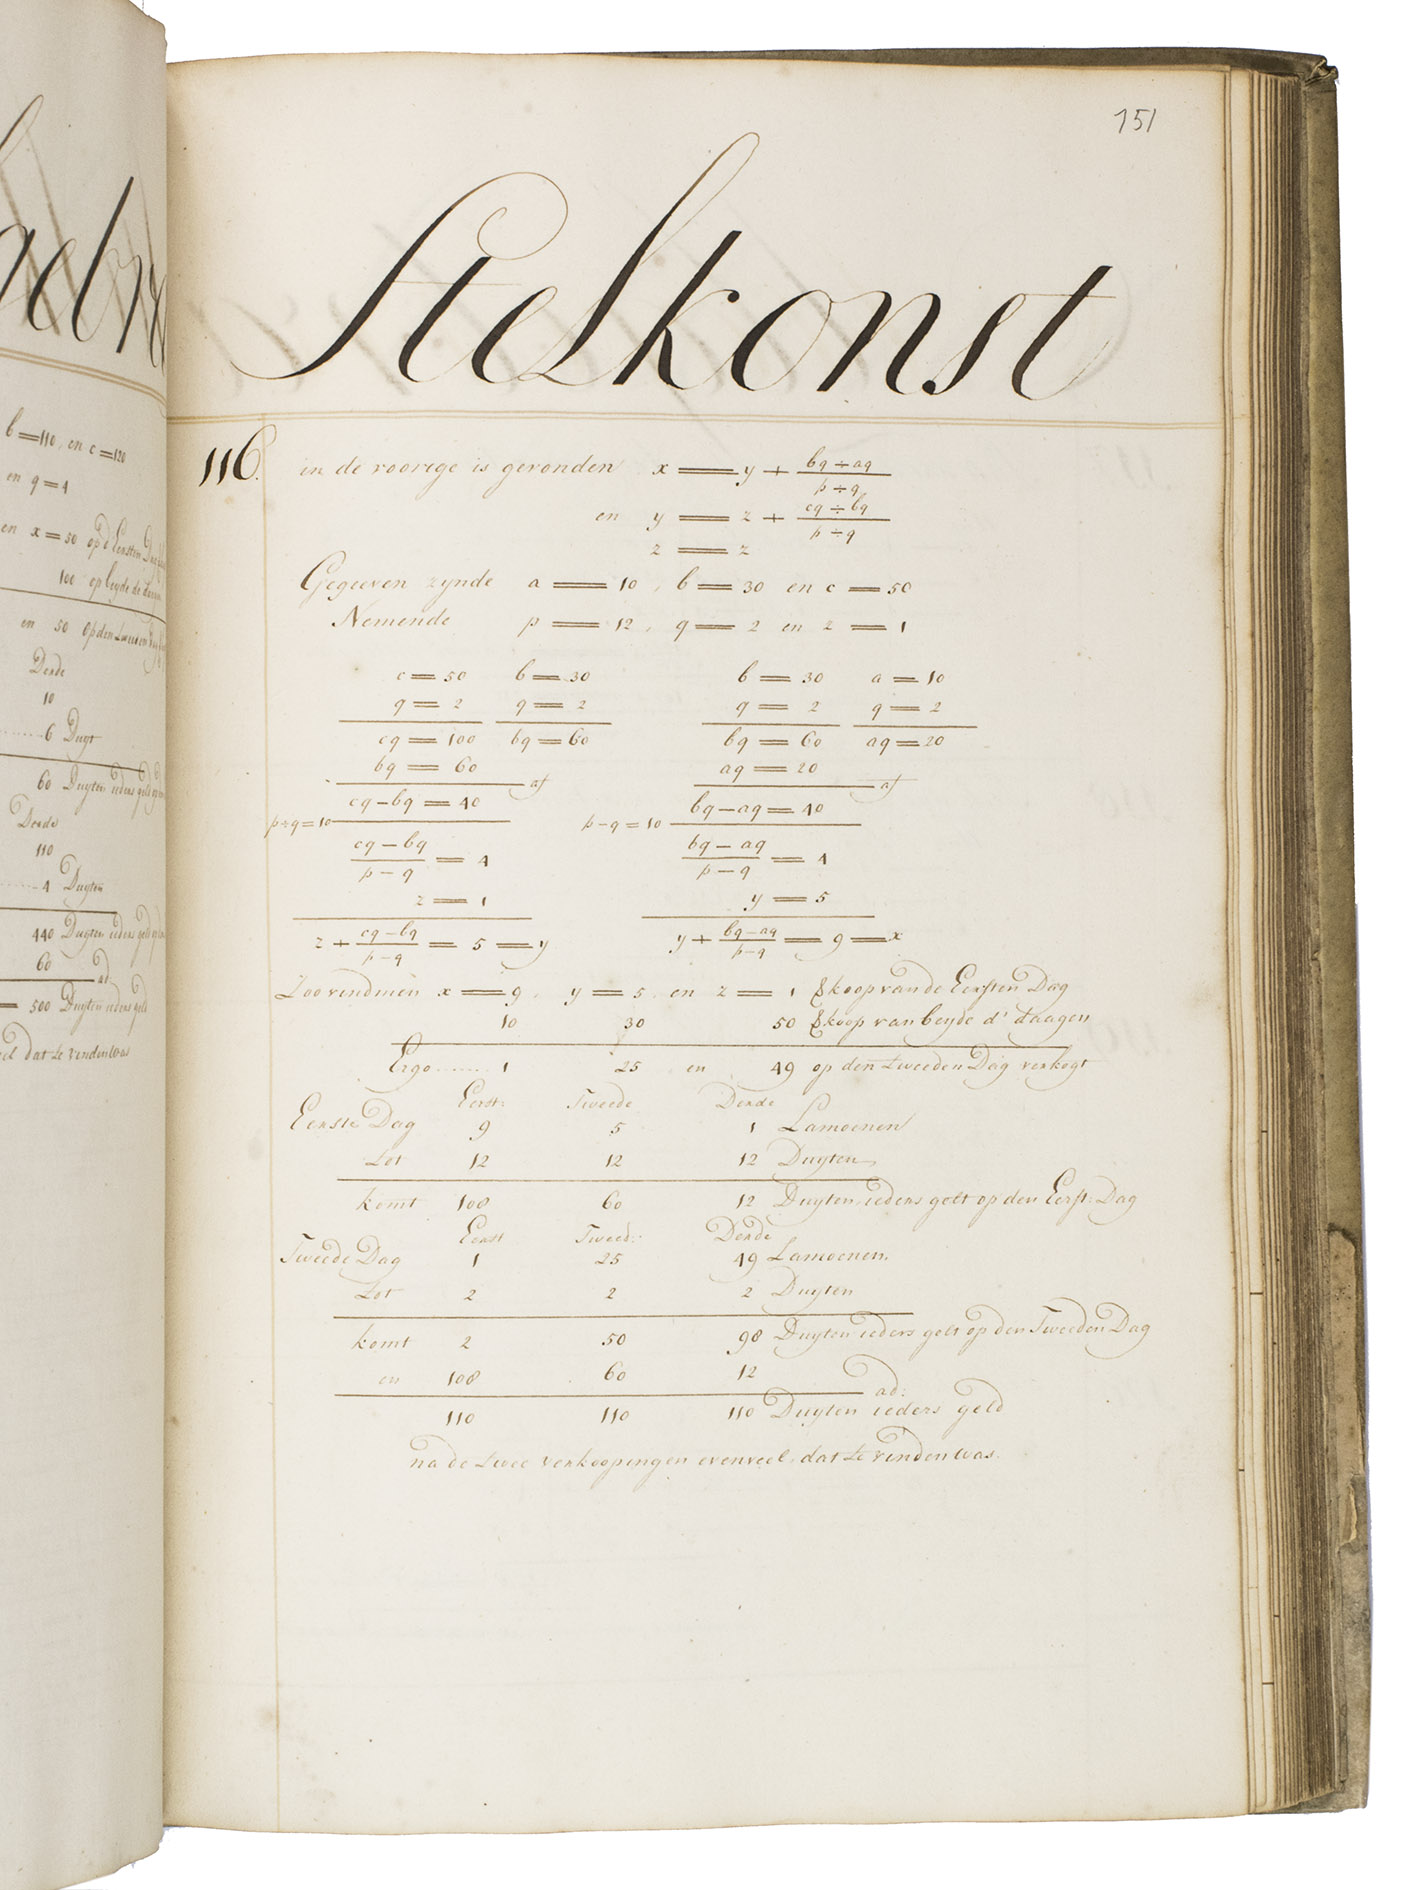 b = 110, en c = 120
en q = 4
en x = 50 op d' Eersten
100 op beyde de
en 50 op den tweeden
Derde
10
6 Duyt
60 Duyten ieders geld
Derde
110
4 Duyten
440 Duyten ieders geld
60 ad
= 500 Duyten ieders geld
dat te vinden was
151
Stelkonst
116. in de voorige is gevonden x = y + bq ÷ aq / p ÷ q
en y = z + cq ÷ bq / p ÷ q
z = z
Gegeeven zynde a = 10, b = 30 en c = 50
Nemende p = 12, q = 2 en z = 1
c = 50 b = 30 b = 30 a = 10
q = 2 q = 2 q = 2 q = 2
cq = 100 bq = 60 bq = 60 aq = 20
bq = 60 af aq = 20 af
cq - bq = 40 bq - aq = 40
p ÷ q = 10 p - q = 10
cq - bq / p - q = 4 bq - aq / p - q = 4
z = 1 y = 5
z + cq - bq / p - q = 5 = y y + bq - aq / p - q = 9 = x
Zoo vindmen x = 9, y = 5 en z = 1 koop van de Eersten Dag
10 30 50 koop van beyde d' daagen
Ergo 1 25 en 49 op den tweeden Dag verkogt
Eerst: Tweede Derde
Eerste Dag 9 5 1 Lamoenen
Tot 12 12 12 Duyten
komt 108 60 12 Duyten ieders gelt op den Eerst: Dag
Eerst Tweed: Derde
Tweede Dag 1 25 49 Lamoenen
Tot 2 2 2 Duyten
komt 2 50 98 Duyten ieders gelt op den Tweeden Dag
en 108 60 12 ad:
110 110 110 Duyten ieders geld
na de twee verkoopingen evenveel, dat te vinden was.